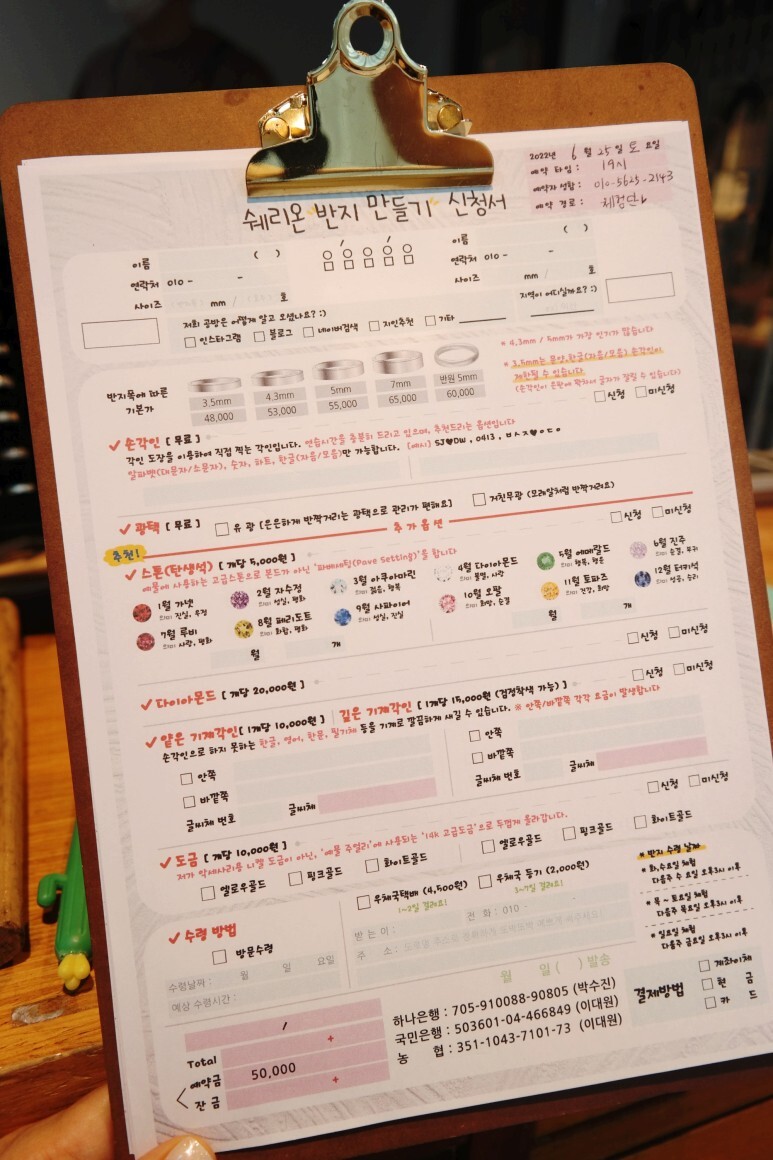 2022년 6월 25일 토요일
예약 타임 : 19시
예약자 성함 : 010-5625-2143
예약 경로 : 체험단
쉐리온 "반지 만들기" 신청서
이름 ( )
연락처 010 - -
사이즈 mm / 호
음 음 음 음 음
이름 ( )
연락처 010 - -
사이즈 mm / 호
저희 공방은 어떻게 알고 오셨나요? :)
□ 인스타그램 □ 블로그 □ 네이버검색 □ 지인추천 □ 기타
지역이 어디실까요? :)
반지폭에 따른 기본가
3.5mm 4.3mm 5mm 7mm 반원 5mm
48,000 53,000 55,000 65,000 60,000
* 4.3mm / 5mm가 가장 인기가 많습니다
* 3.5mm는 문양,한글(자음/모음) 손각인이
제한될 수 있습니다
□ 신청 □ 미신청
✓ 손각인 [ 무료 ]
각인 도장을 이용하여 직접 찍는 각인입니다. 연습시간을 충분히 드리고 있으며, 추천드리는 옵션입니다
알파벳(대문자/소문자), 숫자, 하트, 한글(자음/모음)만 가능합니다. [예시] SJ♥DW , 0413 , ㅂㅅㅈ♥ㅇㄷㅇ
✓ 광택 [ 무료 ] □ 유 광 [은은하게 반짝거리는 광택으로 관리가 편해요] □ 거친무광 (모래알처럼 반짝거려요)
추가옵션
추천!
□ 신청 □ 미신청
✓ 스톤(탄생석) [ 개당 5,000원 ]
예물에 사용하는 고급스톤으로 본드가 아닌 '파베세팅(Pave Setting)'을 합니다
1월 가넷 의미 진실, 우정
2월 자수정 의미 성실, 평화
3월 아쿠아마린 의미 젊음, 행복
4월 다이아몬드 의미 불멸, 사랑
5월 에메랄드 의미 행복, 행운
6월 진주 의미 순결, 부귀
7월 루비 의미 사랑, 평화
8월 페리도트 의미 화합, 평화
9월 사파이어 의미 성실, 진실
10월 오팔 의미 희망, 순결
11월 토파즈 의미 건강, 희망
12월 터키석 의미 성공, 승리
월 개
월 개
□ 신청 □ 미신청
✓ 다이아몬드 [ 개당 20,000원 ]
□ 신청 □ 미신청
✓ 얕은 기계각인 [ 1개당 10,000원 ] | 깊은 기계각인 [ 1개당 15,000원 (검정착색 가능) ]
손각인으로 하지 못하는 한글, 영어, 한문, 필기체 등을 기계로 깔끔하게 새길 수 있습니다. ※ 안쪽/바깥쪽 각각 요금이 발생합니다
□ 안쪽
□ 바깥쪽
글씨체 번호 글씨체
□ 안쪽
□ 바깥쪽
글씨체 번호 글씨체
□ 신청 □ 미신청
✓ 도금 [ 개당 10,000원 ]
저가 악세사리용 니켈 도금이 아닌, '예물 주얼리'에 사용되는 '14k 고급도금'으로 두껍게 올라갑니다.
□ 옐로우골드 □ 핑크골드 □ 화이트골드
□ 옐로우골드 □ 핑크골드 □ 화이트골드
✓ 수령 방법
□ 방문수령
수령날짜 : 월 일 요일
예상 수령시간 :
□ 우체국택배 (4,500원) □ 우체국 등기 (2,000원)
1~2일 걸려요! 3~7일 걸려요!
받 는 이 : 전 화 : 010 -
주 소 :
월 일 ( ) 발송
* 반지 수령 날짜
* 화,수요일 체험
다음주 수 요일 오후3시 이후
* 목 ~ 토요일 체험
다음주 목요일 오후3시 이후
* 일요일 체험
다음주 금요일 오후3시 이후
/
Total +
예약금 50,000
잔 금 +
하나은행 : 705-910088-90805 (박수진)
국민은행 : 503601-04-466849 (이대원)
농 협 : 351-1043-7101-73 (이대원)
결제방법
□ 계좌이체
□ 현 금
□ 카 드